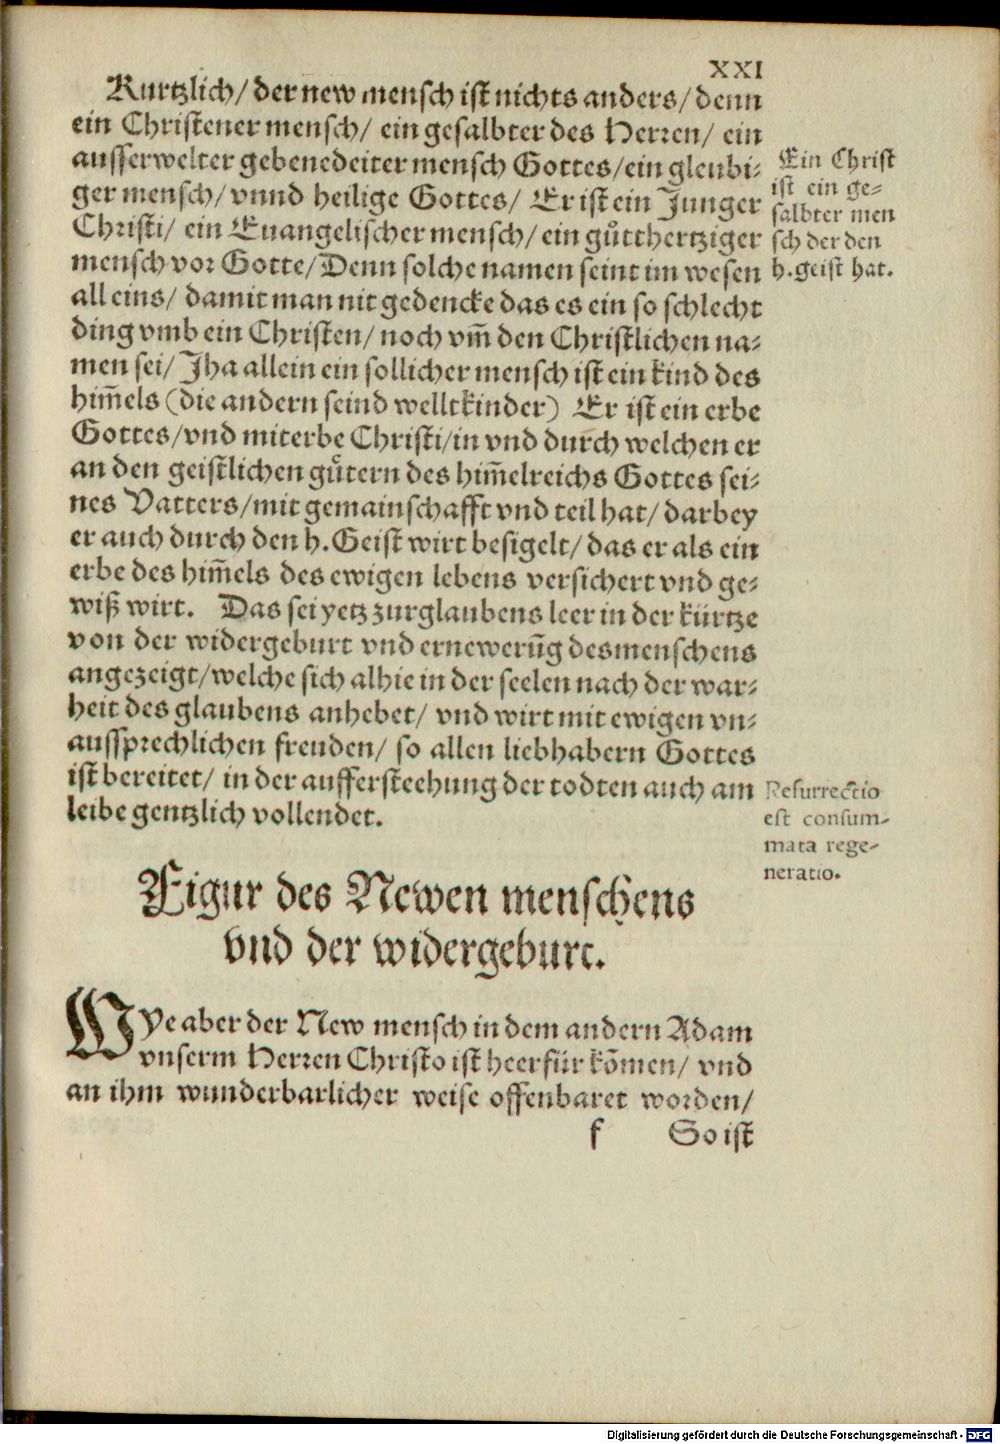 XXI
Kurtzlich/ der new mensch ist nichts anders/ denn
ein Christener mensch/ ein gesalbter des Herren/ ein
ausserwelter gebenedeiter mensch Gottes/ ein gleubi⸗
ger mensch/ vnnd heilige Gottes/ Er ist ein Junger
Christi/ ein Euangelischer mensch/ ein gůtthertziger
mensch vor Gotte/ Denn solche namen seint im wesen
all eins/ damit man nit gedencke das es ein so schlecht
ding vmb ein Christen/ noch vm̄ den Christlichen na⸗
men sei/ Jha allein ein sollicher mensch ist ein kind des
him̄els (die andern seind welltkinder) Er ist ein erbe
Gottes/ vnd miterbe Christi/ in vnd durch welchen er
an den geistlichen gůtern des him̄elreichs Gottes sei⸗
nes Vatters/ mit gemainschafft vnd teil hat/ darbey
er auch durch den h. Geist wirt besigelt/ das er als ein
erbe des him̄els des ewigen lebens versichert vnd ge⸗
wiß wirt. Das sei yetz zur glaubens leer in der kürtze
von der widergeburt vnd ernewerūg des menschens
angezeigt/ welche sich alhie in der seelen nach der war⸗
heit des glaubens anhebet/ vnd wirt mit ewigen vn⸗
aussprechlichen freuden/ so allen liebhabern Gottes
ist bereitet/ in der aufferstehung der todten auch am
leibe gentzlich vollendet.
Ein Christ
ist ein ge⸗
salbter men
sch der den
h. geist hat.
Resurrectio
est consum⸗
mata rege⸗
neratio.
Figur des Newen menschens
vnd der widergeburt.
WYe aber der New mensch in dem andern Adam
vnserm Herren Christo ist heerfür kōmen/ vnd
an ihm wunderbarlicher weise offenbaret worden/
f So ist
Digitalisierung gefördert durch die Deutsche Forschungsgemeinschaft - DFG